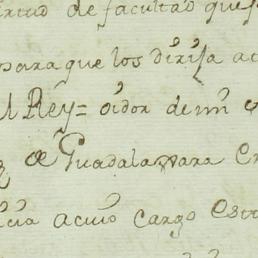 virtud de facultad que
para que los dirija a
el Rey = oidor de mi
de Guadalaxara en
cia a cuio cargo esta